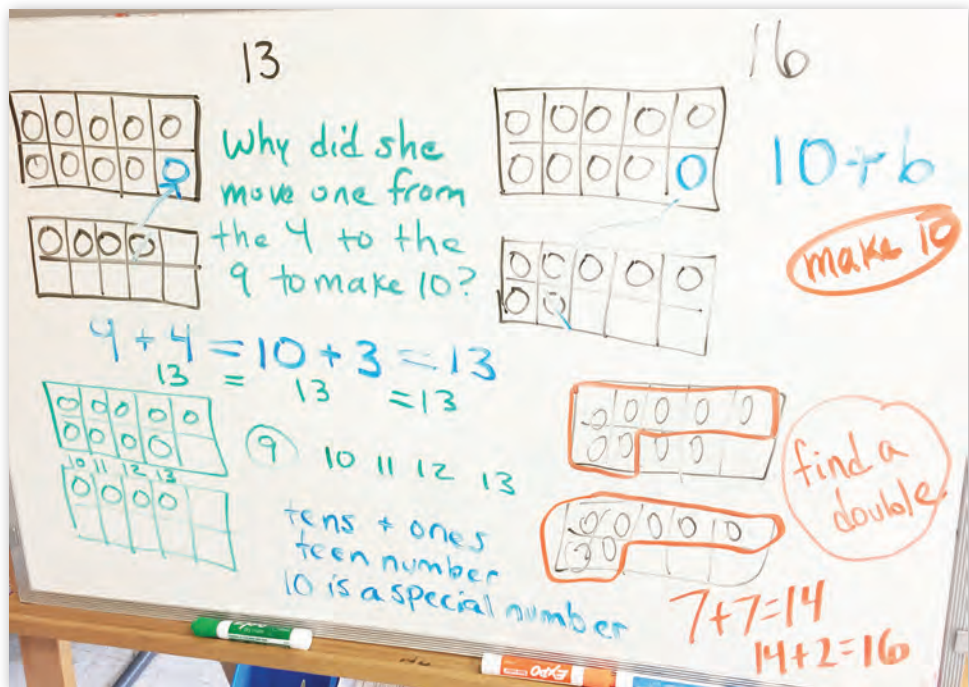 13
Why did she
move one from
the 4 to the
9 to make 10?
9 + 4 = 10 + 3 = 13
13 = 13 = 13
9 10 11 12 13
10 11 12 13
tens + ones
teen number
10 is a special number
16
10 + 6
make 10
find a
double
7+7=14
14+2=16
EXPO